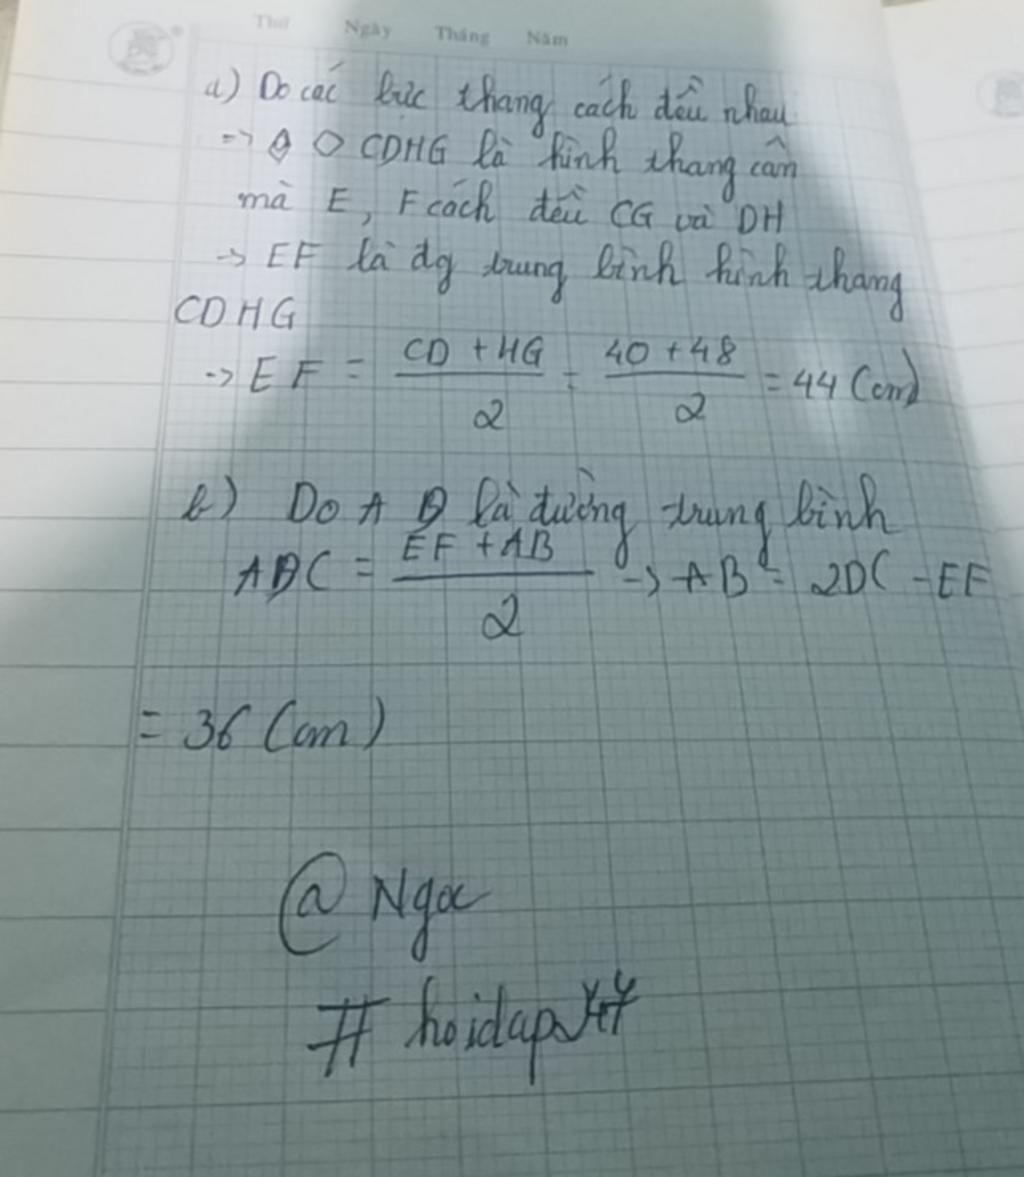 Thứ Ngày Tháng Năm
a) Do các bậc thang cách đều nhau
=> ◇ CDHG là hình thang cân
mà E, F cách đều CG và DH
-> EF là đg trung bình hình thang
CDHG
-> EF = (CD + HG)/2 = (40 + 48)/2 = 44 (cm)
b) Do là đường trung bình
DC = (EF + AB)/2 -> AB = 2DC - EF
= 36 (cm)
@ Ngoc
# hoidap247